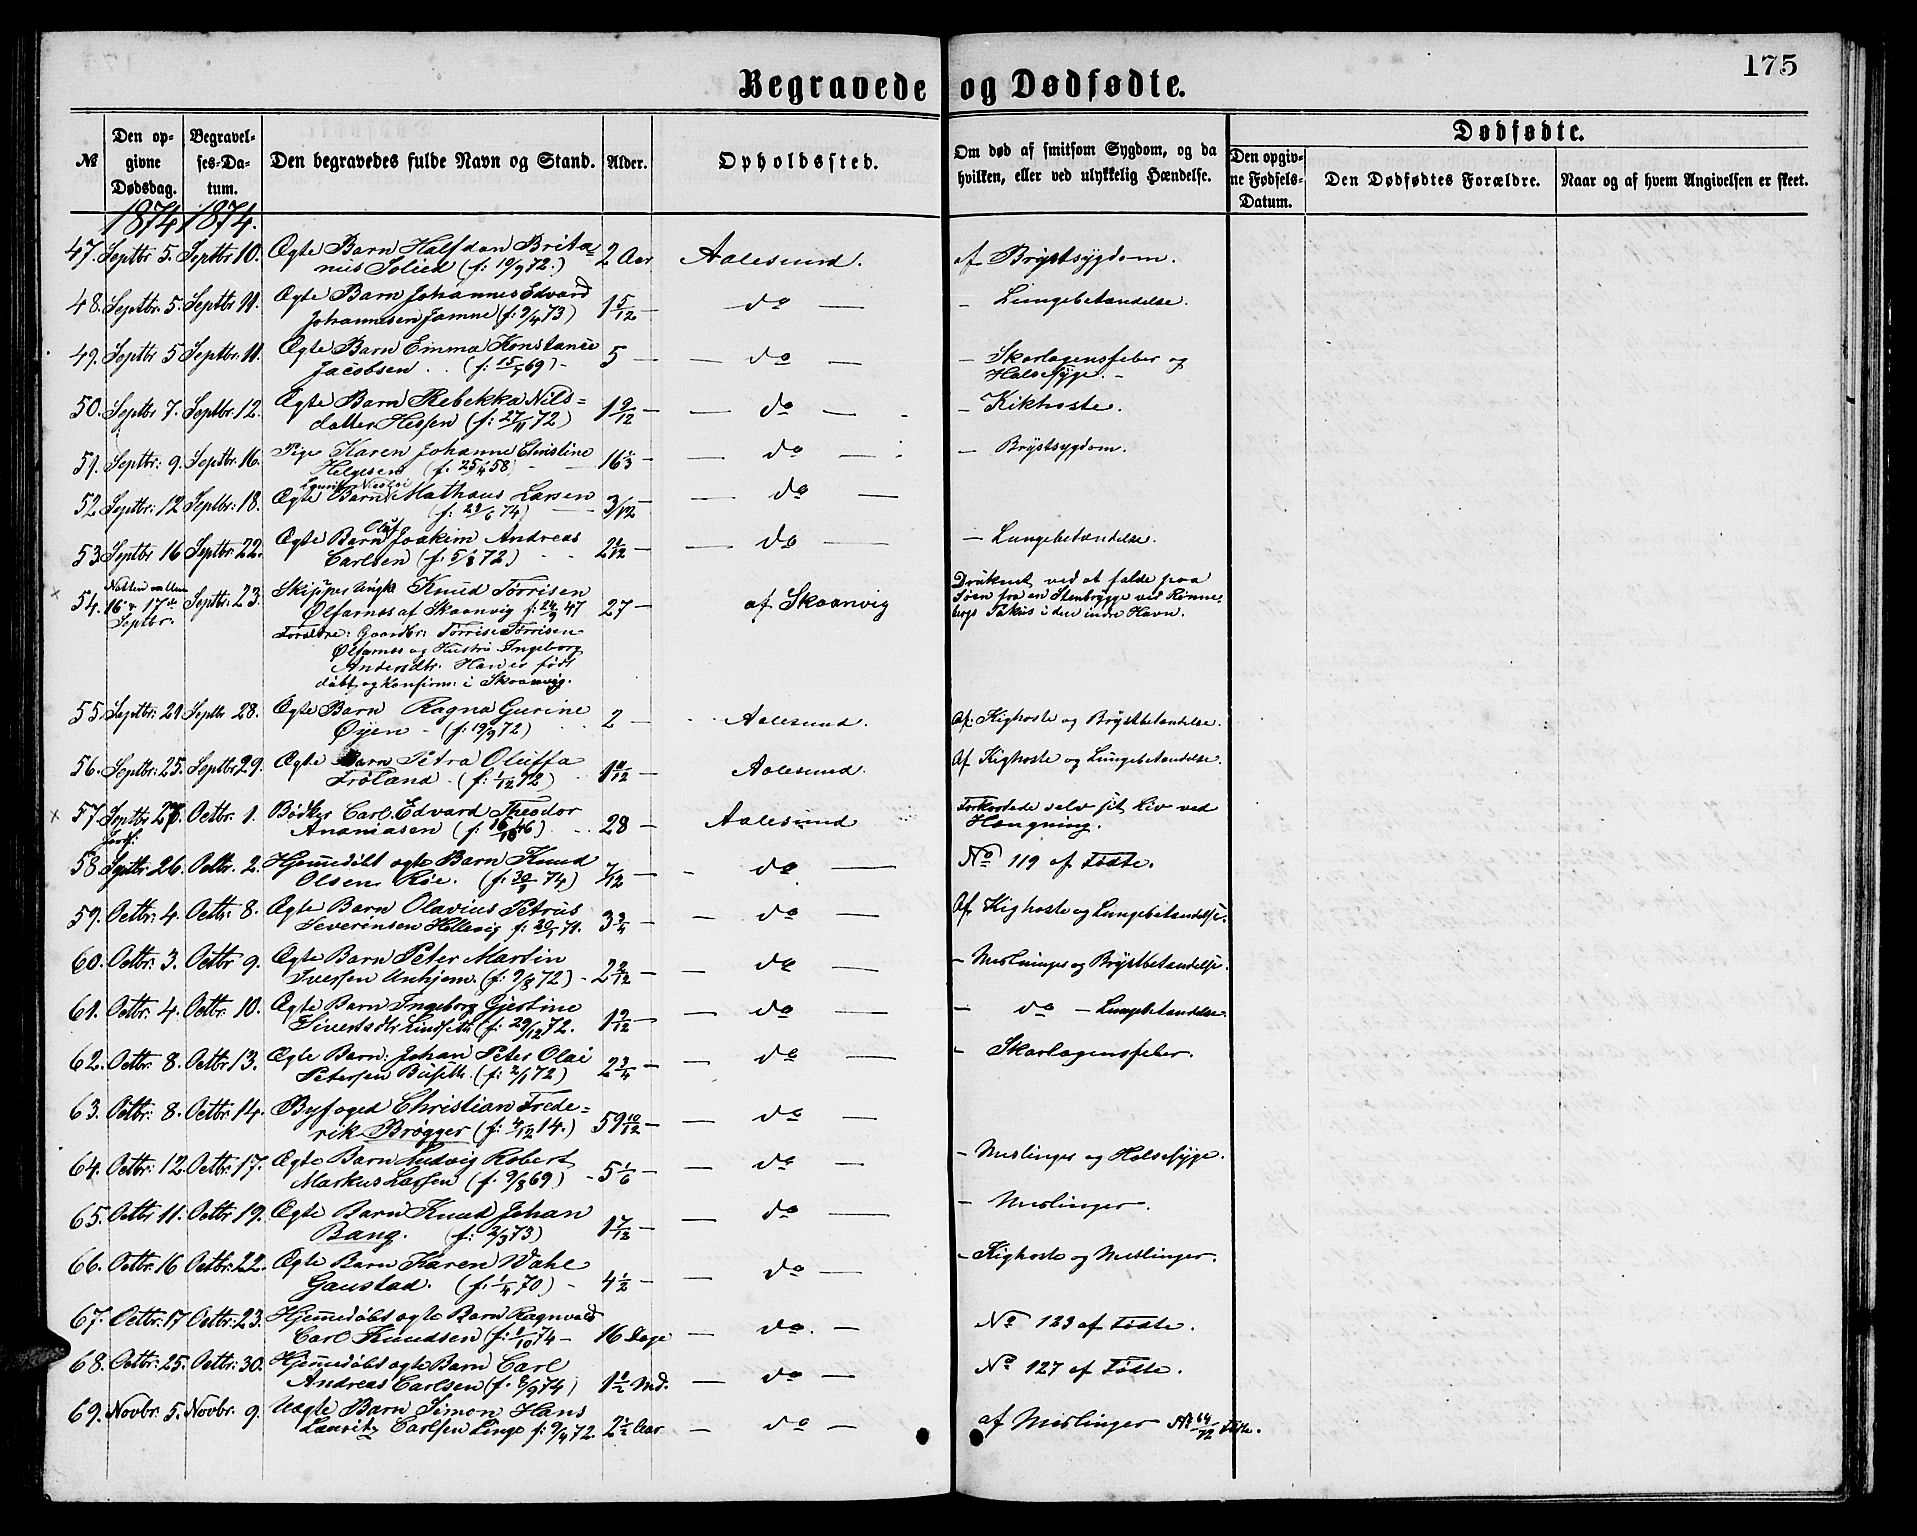 175
Begravede og Dødfødte.
№
Den opgivne Dødsdag.
Begravelses-Datum.
Den begravedes fulde Navn og Stand.
Alder.
Opholdssted.
Om død af smitsom Sygdom, og da hvilken, eller ved ulykkelig Hændelse.
Dødfødte.
Den opgivne Fødsels-Datum.
Den Dødfødtes Forældre.
Naar og af hvem Angivelsen er skeet.
1874 1874.
47. Septbr 5. Septbr 10. Ægte Barn Halfdan Brita= 2 Aar Aalesund. af Brystsygdom.
nius Solied (f: 10/9 72.)
48. Septbr. 5. Septbr 11. Ægte Barn Johannes Edvard 1 5/12 — do — – Lungebetændelse.
Johannesen Jamne (f: 9/4 73)
49. Septbr 5 Septbr. 11. Ægte Barn Emma Konstanse 5 — do — – Skarlagensfeber og
Jacobsen (f: 15/5 69) Halssyge.
50. Septbr 7. Septbr. 12. Ægte Barn Rebekka Nils= 1 9/12 — do — – Kikhoste.
datter Hessen (f: 27/11 72)
51. Septbr: 9. Septbr. 16. Pige Karen Johanne Christine 16 1/3 — do — – Brystsygdom.
Helgesen (f. 25/4 58)
52 Septbr: 12 Septbr: 18. Ægte Barn Mathæus Larsen 3/12 — do —
(f: 29/6 74)
Oluf
53 Septbr 16 Septbr: 22. Ægte Barn Joakim Andreas 2 1/12 — do — – Lungebetændelse.
Carlsen (f: 5/8 72)
54. Natten mellem 16 & 17de Septbr. Septbr: 23. Skipper Ungk. Knud Tørrisen 27 — af Skaanvig Druknet ved at falde paa
Ølfarnes af Skaanvig f: 24/9 47 Søen fra en Stenbrygge ved Rønne=
Forældre: Gaardbr: Tørris Tørrisen bergs Pakus i den indre Havn.
Ølfarnes og Hustru Ingeborg
Andersdtr. Han er født
døbt og konfirm: i Skaanvig.
55. Septbr: 21 Septbr 28. Ægte Barn Ragna Gurine 2 — Aalesund. Af Kighoste og Brystbetændelse.
Øyen - (f: 19/9 72)
56. Septbr: 25. Septbr 29. Ægte Barn Petra Oluffa 1 9/12 — Aalesund. Af Kighoste og Lungebetændelse.
Frøland. (f: 1/12 72)
57. Septbr 27. Octbr. 1. Bødker Carl Edvard Theodor 28 — Aalesund Forkortede selv sit Liv ved
Ananiasen (f: 16/10 46) Hængning.
58 Septbr: 26. Octbr. 2. Hjemmedøbt ægte Barn Knud 7/12 — do — No 119 af Fødte.
Olsen Røe. (f: 30/1 74)
59. Octbr: 4. Octbr: 8. Ægte Barn Olavius Petrus 3 3/4 — do — Af Kighoste og Lungebetændelse.
Severinsen Hellevig f: 20/1 71.
60. Octbr: 3. Octbr 9. Ægte Barn Peter Martin 2 2/12 — do — – Meslinger og Brystbetændelse.
Iversen Anhjem. (f: 9/8 72)
61. Octbr: 4. Octbr 10. Ægte Barn Ingeborg Gjertine 1 9/12 — do — – do – Lungebetændelse.
Sivertsdtr Lindseth (f: 29/12 72.
62. Octbr: 8. Octbr 13. Ægte Barn: Johan Peter Olai 2 3/4 — do — – Skarlagensfeber.
Petersen Buseth. (f: 2/1 72)
63. Octbr: 8. Octbr: 14. Byfoged Christian Frede= 59 10/12 — do —
rik Brøgger (f: 4/12 14.)
64. Octbr: 12. Octbr: 17. Ægte Barn Ludvig Robert 5 1/6 — do — – Meslinger og Halssyge.
Markus Larsen (f. 9/8 69)
65. Octbr 11. Octbr. 19. Ægte Barn Knud Johan 1 7/12 — do — – Meslinger.
Bang. (f: 2/3 73)
66. Octbr: 16 Octbr: 22. Ægte Barn Karen Wahl 4 1/2 — do — – Kighoste og Meslinger.
Gaustad. (f. 1/4 70)
67. Octbr: 17 Octbr: 23. Hjemmedøbt ægte Barn Ragnvald 16 Dage — do. — No 123 af Fødte.
Carl Knudsen (f: 1/10 74
68. Octbr: 25. Octbr: 30. Hjemmedøbt ægte Barn Carl 1 1/2 Md. — do — No 127 af Fødte.
Andreas Carlsen (f. 8/9 74)
69. Novbr: 5. Novbr. 9. Uægte Barn Simon Hans 2 1/2 Aar — do — af Meslinger No 64/72 Fødte.
Lauritz Carlsen Linge f: 9/4 72.